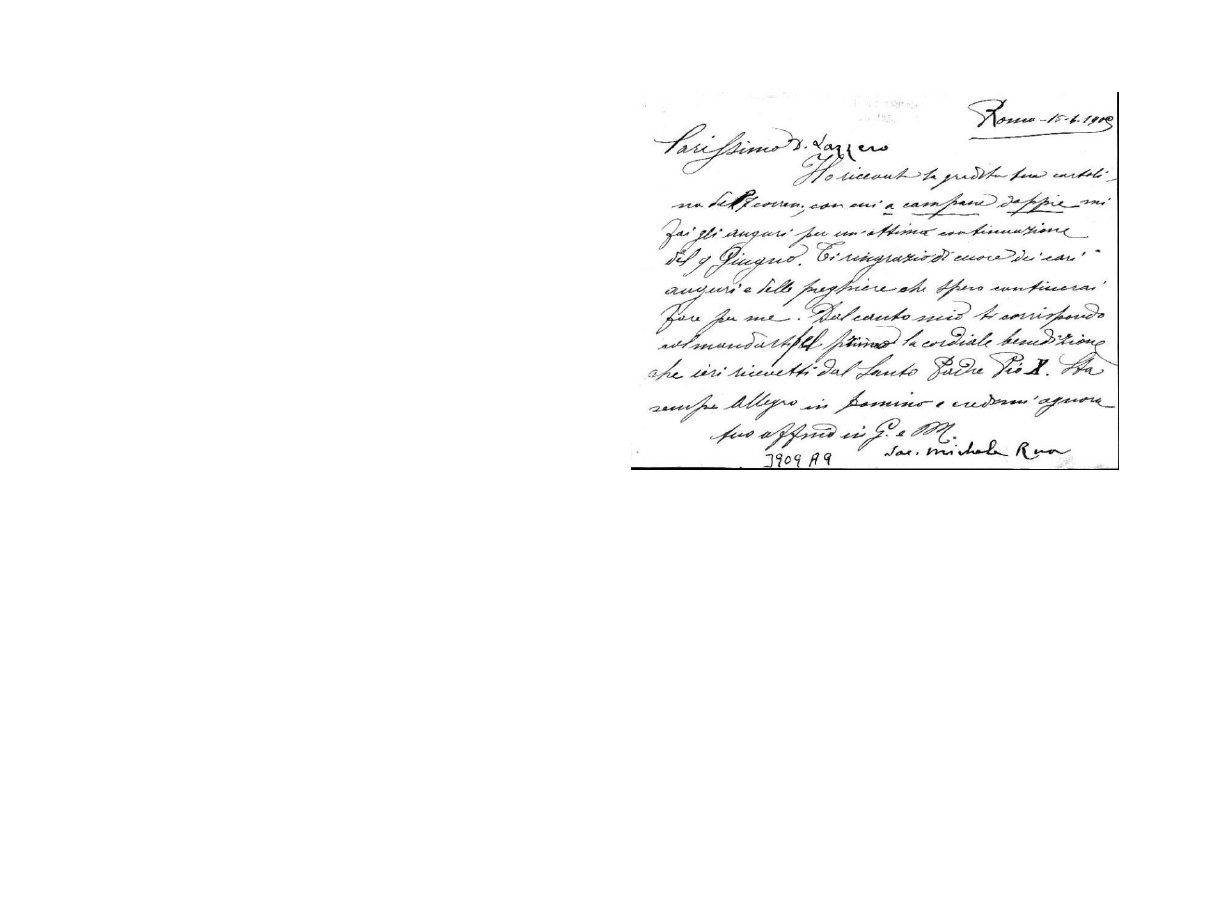 Roma - 15-6.1908
Carissimo D. Lazzero
Ho ricevuto la gradita tua cartoli-
na del 7 corren, con cui a campane doppie mi
fai gli auguri per un'ottima continuazione
del 9 Giugno. Ti ringrazio di cuore dei cari
auguri e delle preghiere che spero continuerai
fare per me. Dal canto mio ti corrispondo
col mandarti pel primo la cordiale benedizione
che ieri ricevetti dal Santo Padre Pio X. Sta
sempre allegro in Domino e credimi ognora
tuo affmo in G. e M.
Sac. Michele Rua
3909 A9